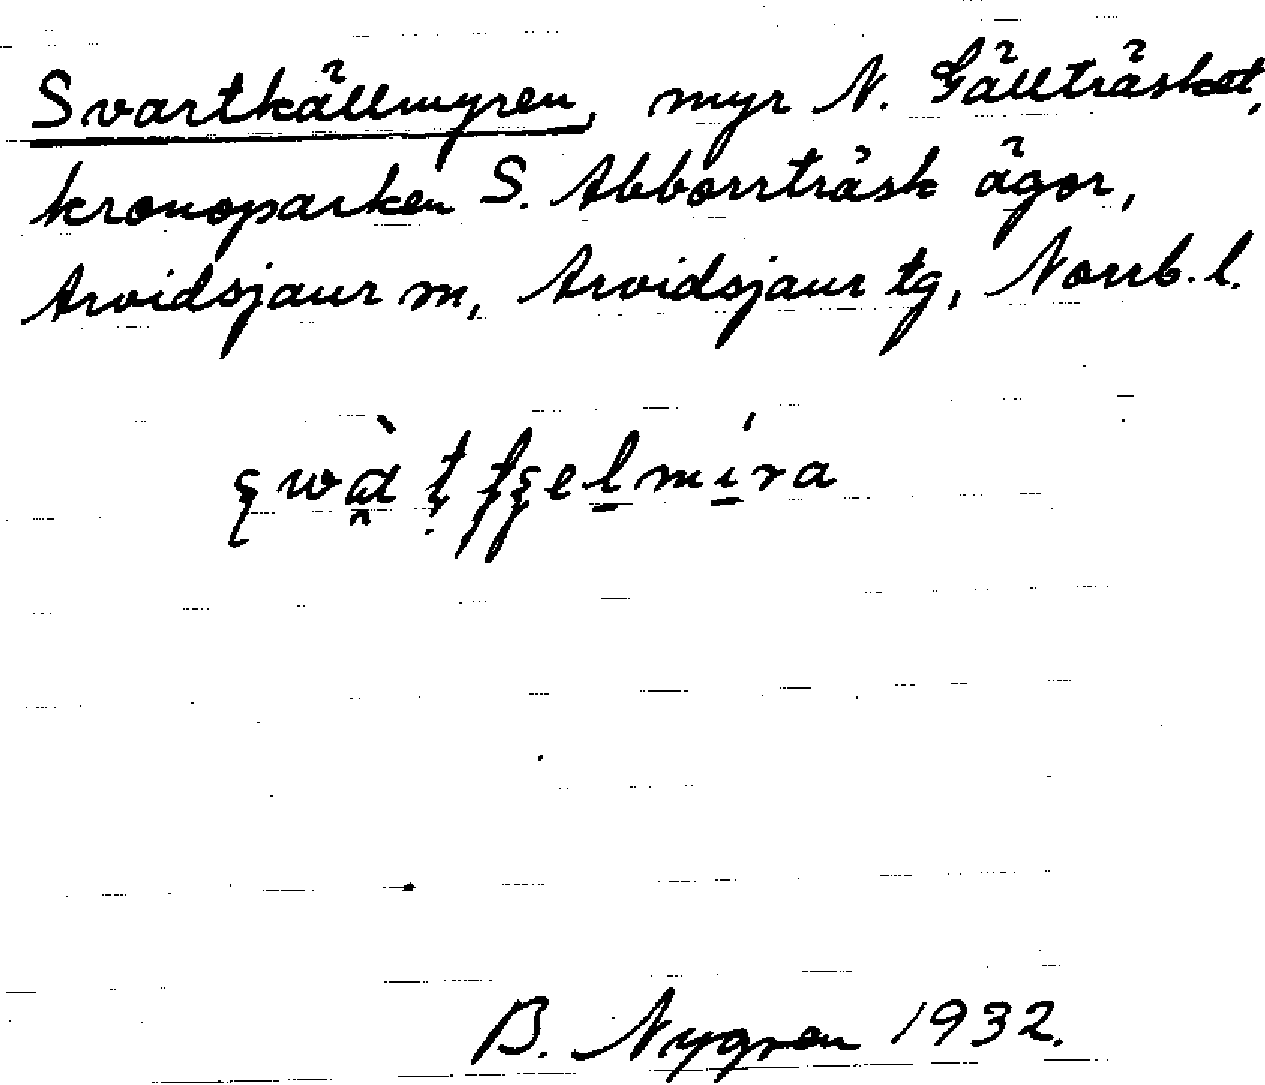 Svartkällmyren, myr N. Gällträsket,
kronoparken S. Abborrträsk ägor,
Arvidsjaur sn, Arvidsjaur tg, Norrb. l.
B. Nygren 1932.